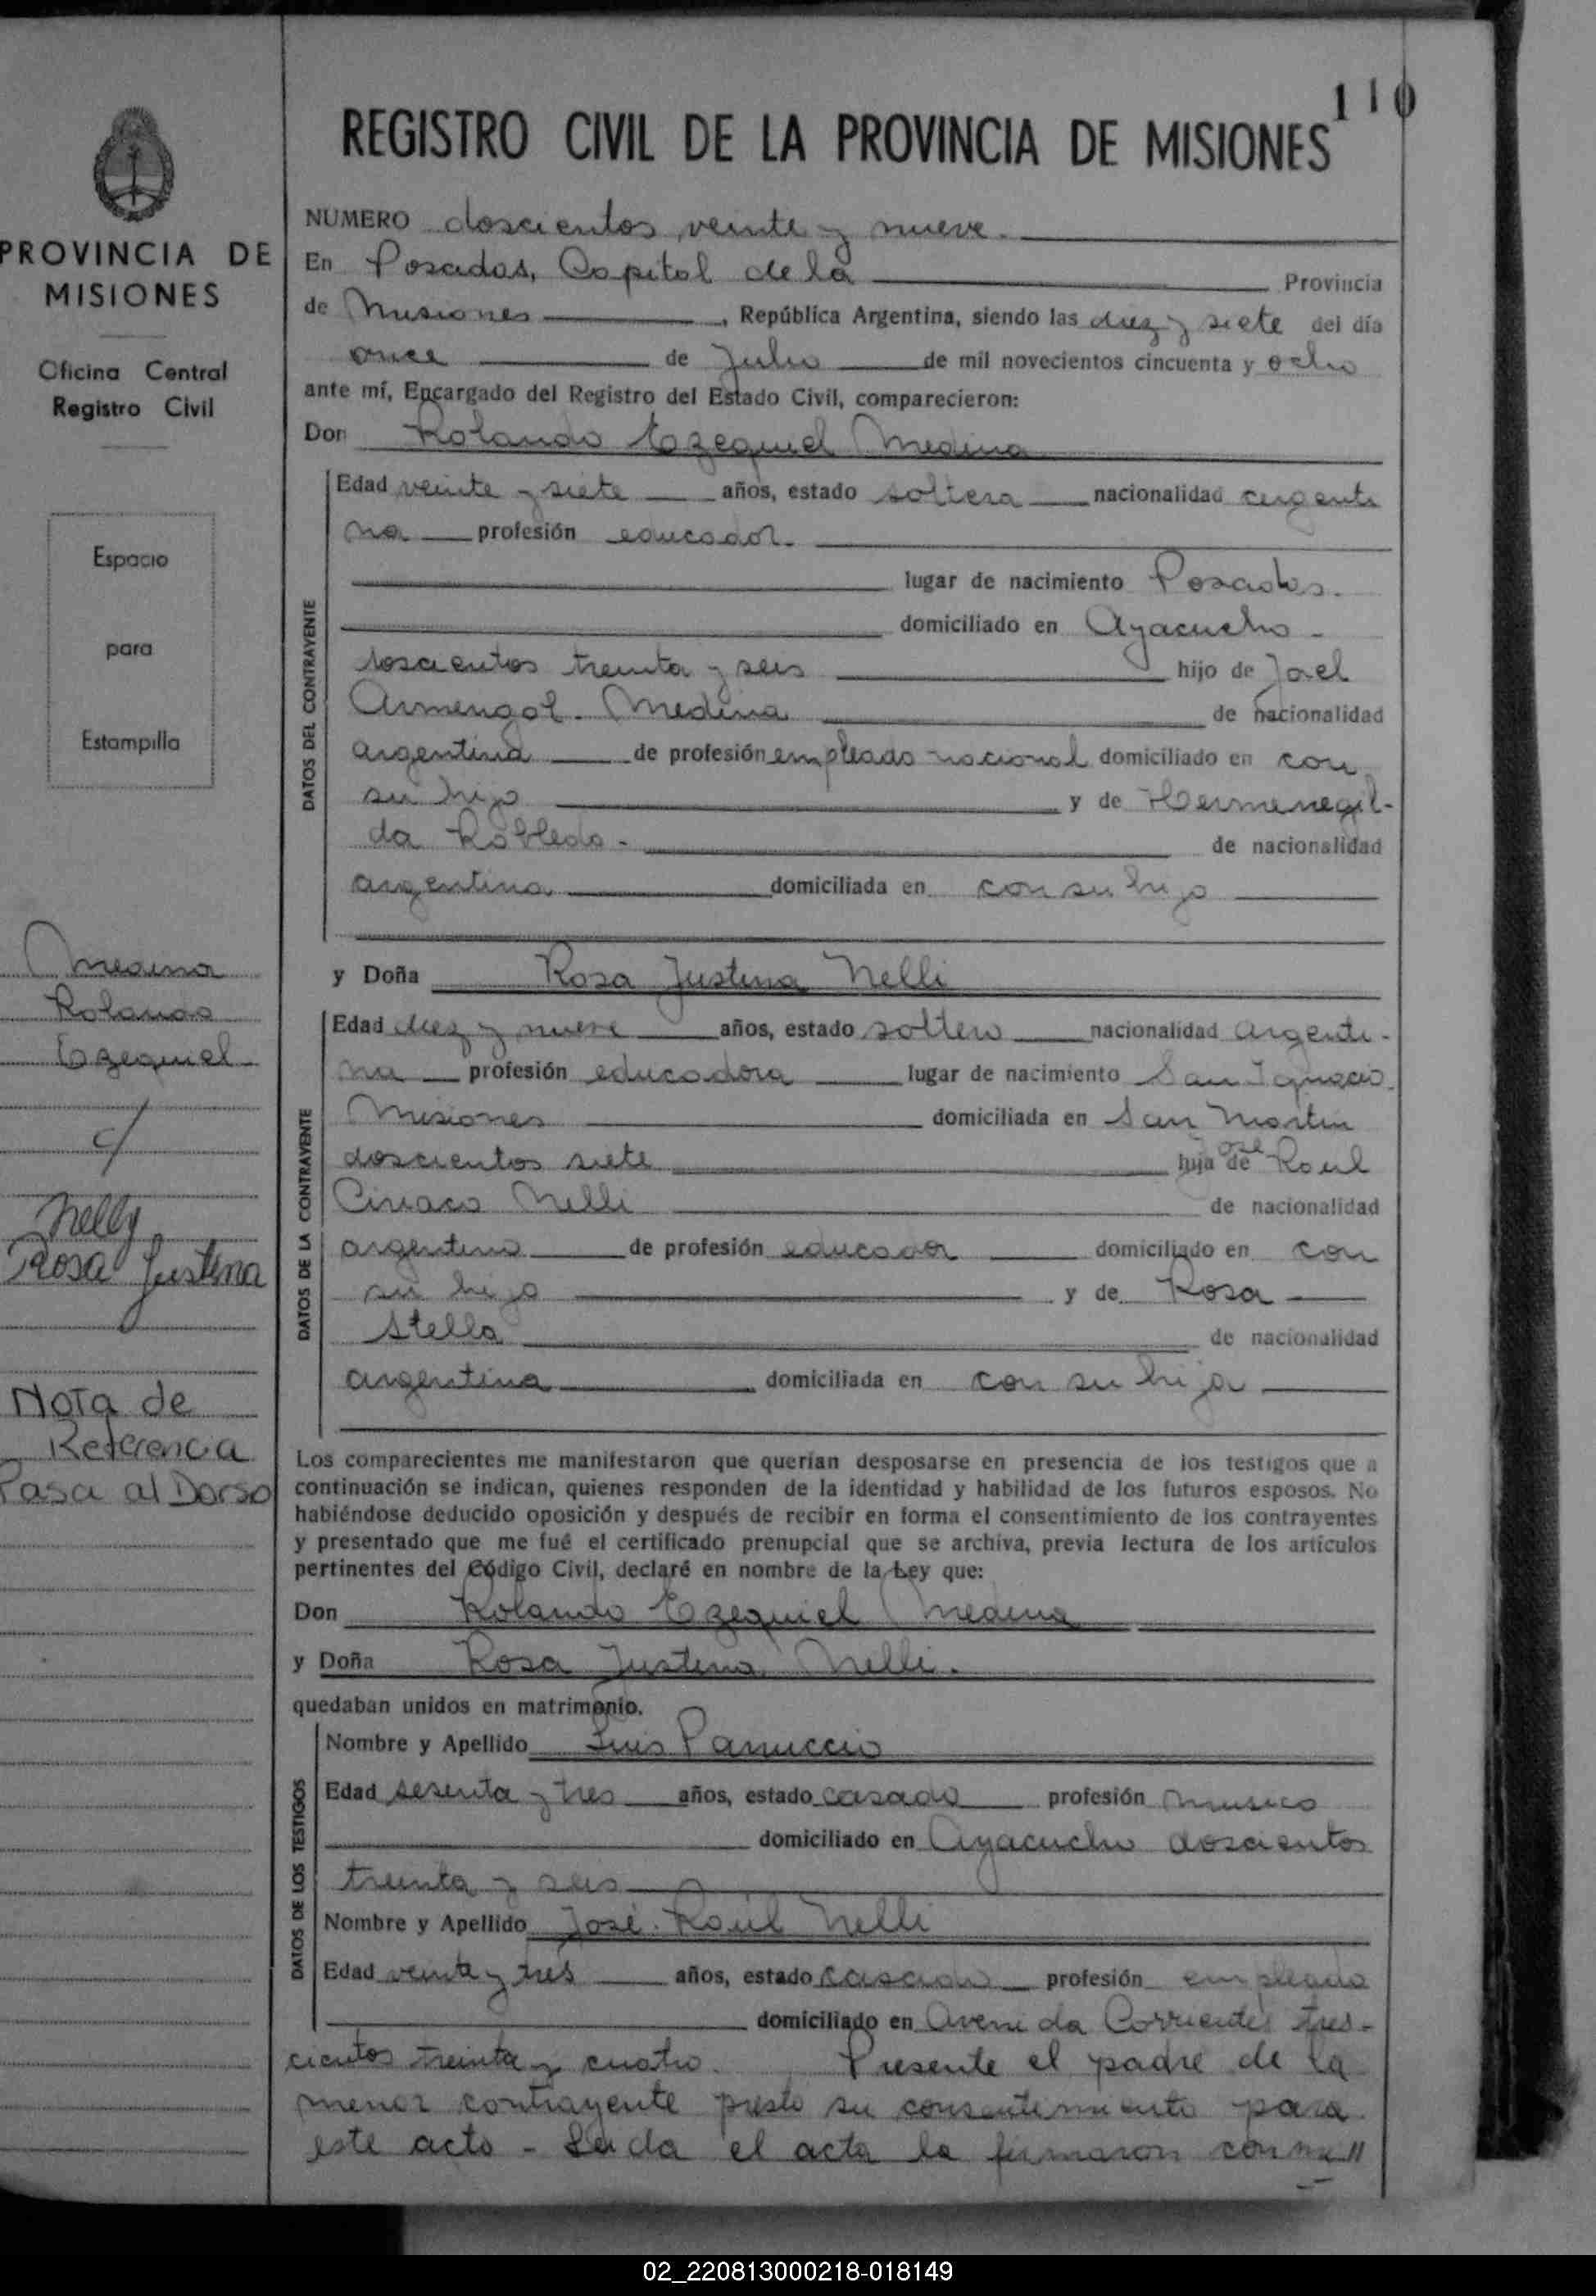 110
REGISTRO CIVIL DE LA PROVINCIA DE MISIONES
PROVINCIA DE
MISIONES
Oficina Central
Registro Civil
Espacio
para
Estampilla
Medina
Rolando
Ezequiel
c/
Nelly
Rosa Justina
Nota de
Referencia
Pasa al Dorso
NUMERO doscientos veinte y nueve.
En Posadas, Capital de la Provincia
de Misiones, República Argentina, siendo las diez y siete del día
once de Julio de mil novecientos cincuenta y ocho
ante mí, Encargado del Registro del Estado Civil, comparecieron:
Don Rolando Ezequiel Medina
DATOS DEL CONTRAYENTE
Edad veinte y siete años, estado soltero nacionalidad argenti
na profesión educador.
lugar de nacimiento Posadas.
domiciliado en Ayacucho -
doscientos treinta y seis hijo de Joel
Armengol Medina de nacionalidad
argentina de profesión empleado nacional domiciliado en con
su hijo y de Hermenegil-
da Robledo - de nacionalidad
argentina domiciliada en con su hijo
y Doña Rosa Justina Nelli
DATOS DE LA CONTRAYENTE
Edad diez y nueve años, estado soltera nacionalidad argenti-
na profesión educadora lugar de nacimiento San Ignacio
Misiones domiciliada en San Martin
doscientos siete hija de José Raul
Ciriaco Nelli de nacionalidad
argentino de profesión educador domiciliado en con
su hija y de Rosa
Stella de nacionalidad
argentina domiciliada en con su hija
Los comparecientes me manifestaron que querían desposarse en presencia de los testigos que a
continuación se indican, quienes responden de la identidad y habilidad de los futuros esposos. No
habiéndose deducido oposición y después de recibir en forma el consentimiento de los contrayentes
y presentado que me fué el certificado prenupcial que se archiva, previa lectura de los artículos
pertinentes del Código Civil, declaré en nombre de la Ley que:
Don Rolando Ezequiel Medina
y Doña Rosa Justina Nelli.
quedaban unidos en matrimonio.
DATOS DE LOS TESTIGOS
Nombre y Apellido Luis Panuccio
Edad sesenta y tres años, estado casado profesión musico
domiciliado en Ayacucho doscientos
treinta y seis
Nombre y Apellido José Raúl Nelli
Edad veinte y tres años, estado casado profesión empleado
domiciliado en Avenida Corrientes tres-
cientos treinta y cuatro. Presente el padre de la
menor contrayente presto su consentimiento para
este acto - Leida el acta la firmaron conmi//
02_220813000218-018149